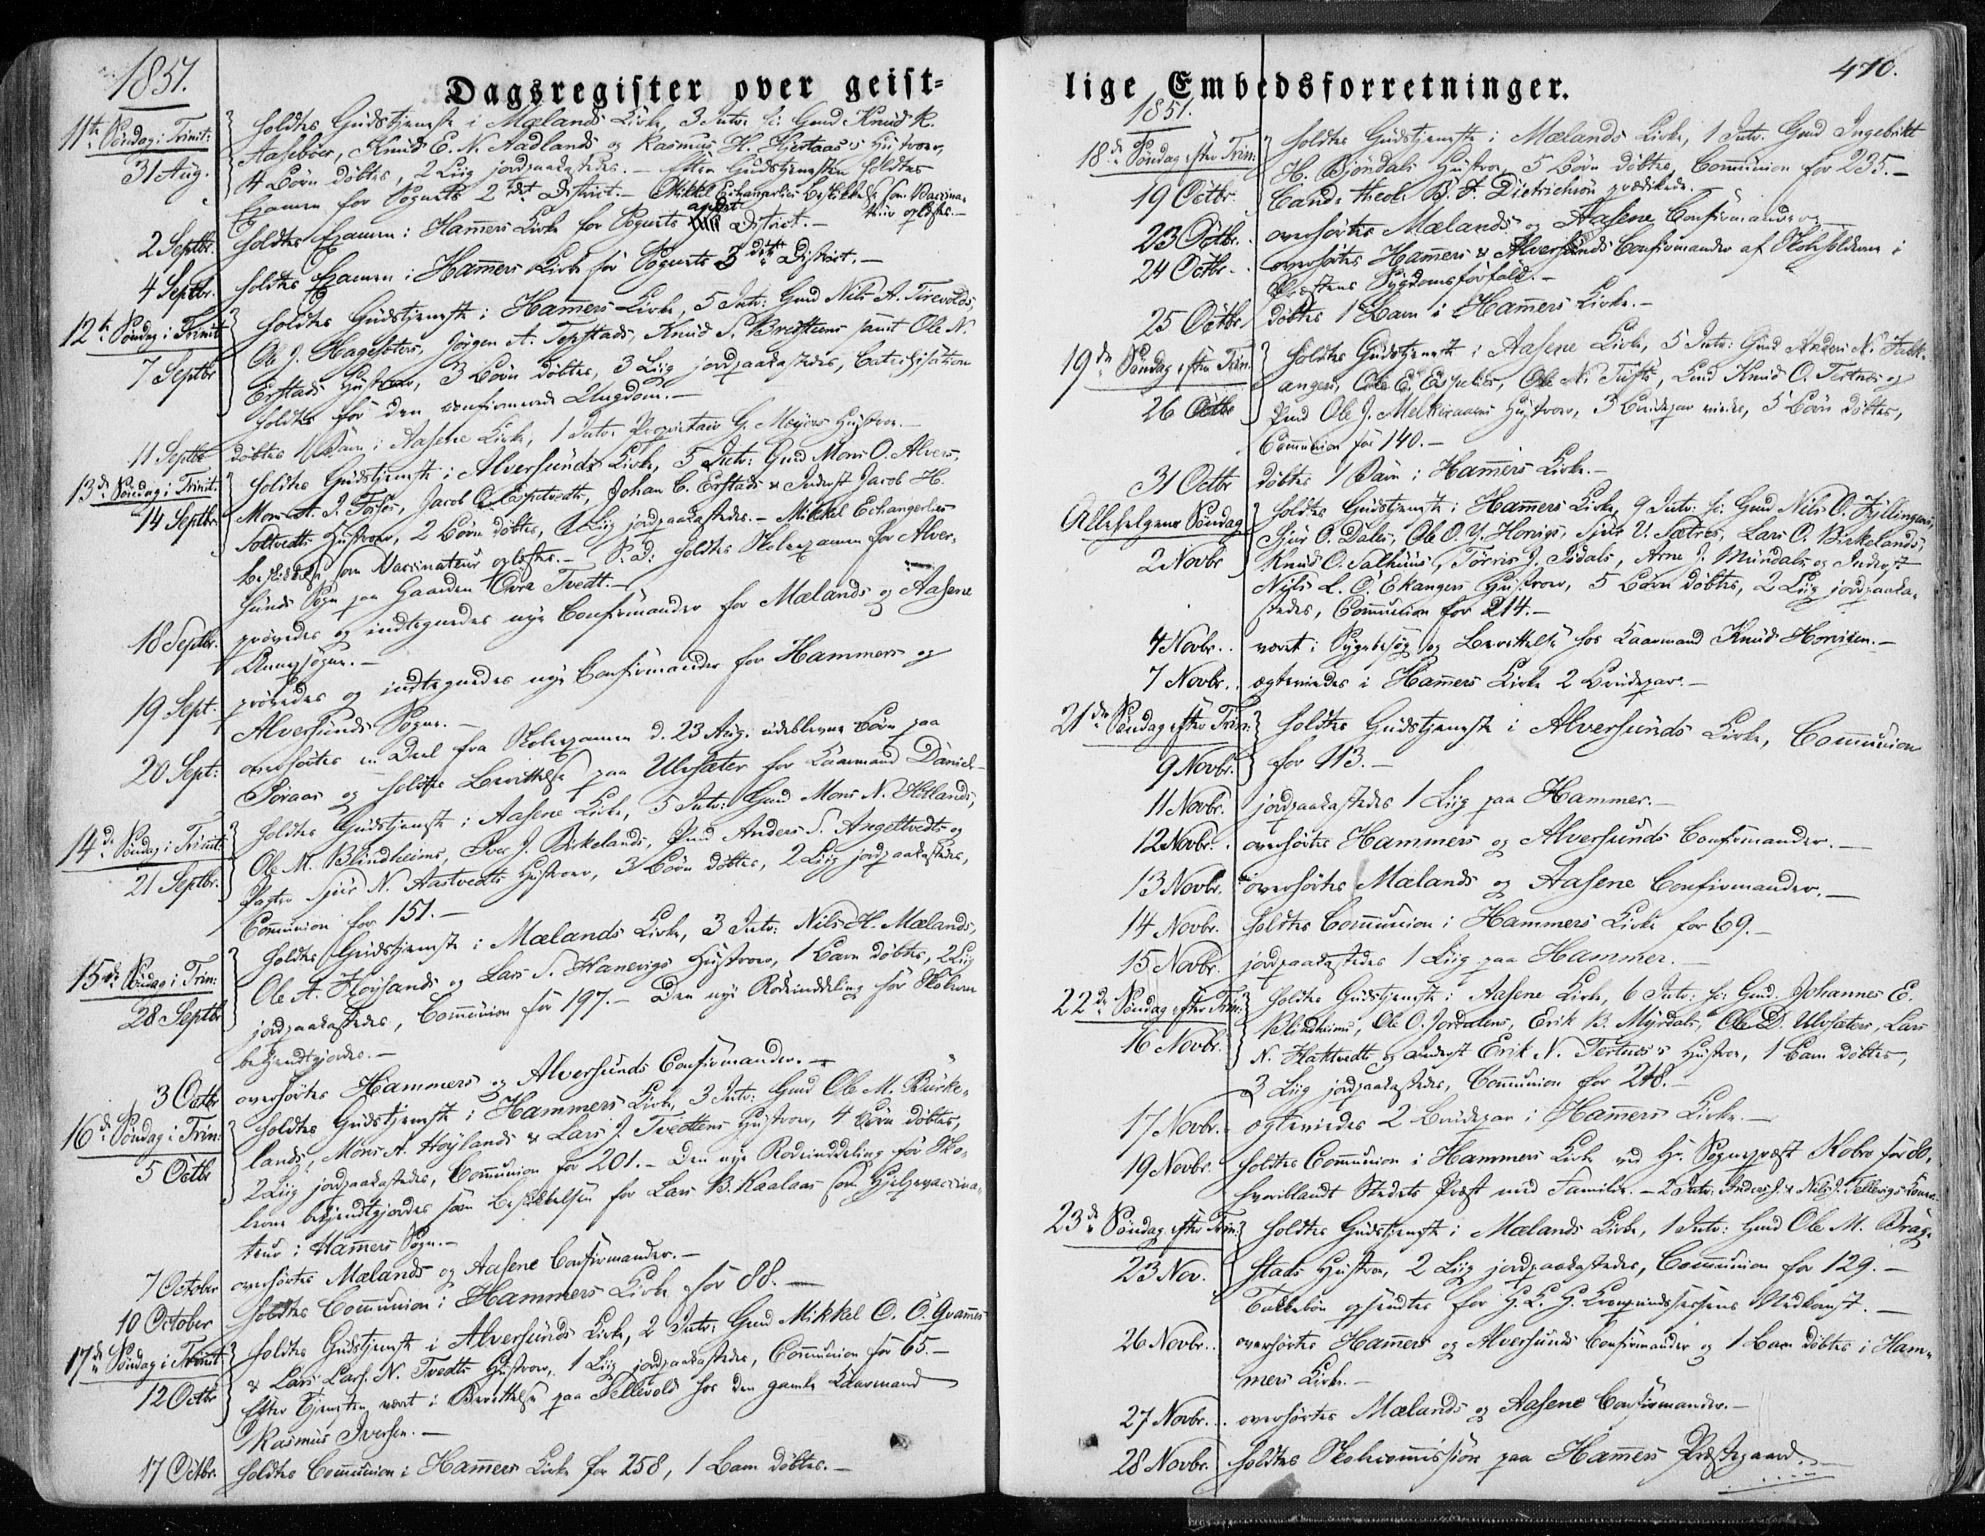 1851.
Dagsregister over geist-
11te Søndag i Trinit:
31 Aug.
holdtes Gudstjeneste i Mælands Kirke, 3 Intr: fr: Gmd Knud K.
Aasebøes, Knud E. N. Aadlands og Rasmus H. Hustroer,
4 Børn døbtes, 2 Liig jordpaakastedes. – Efter Gudstjenesten holdtes
Examen for Sognets 2det District. – Mikkel Echangerlies Beskikkelse som Vaccina-
teur oplæstes. –
2 Septbr. holdtes Examen i Hamers Kirke for Sognets andet District. –
4 Septbr. holdtes Examen i Hamers Kirke for Sognets 3die District. –
12te Søndag i Trinit
7 Septbr
holdtes Gudstjeneste i Hamers Kirke, 5 Intr: Gmd Nils A. Tirevolds,
Ole J. Hagesæters, Jørgen A. Tepstads, Knud S. samt Ole N.
Erstads Hustroer, 3 Børn døbtes, 3 Liig jordpaakastedes, Catechisation
holdtes for den confirmerede Ungdom. –
11 Septbr døbtes 1 Barn i Aasene Kirke, 1 Intr: Proprietair G. Meyers Hustroe. –
13de Søndag i Trinit:
14 Septbr.
holdtes Gudstjeneste i Alversunds Kirke, 5 Intr: Gmd Mons O. Alvers,
Mons A. J. Fosses, Jacob O. Espetvedts, Johan C. Erstads & Inderst Jacob H.
Toltvedts Hustroer, 2 Børn døbtes, 1 Liig jordpaakastedes. – Mikkel Echangerlies
Beskikkelse som Vaccinateur oplæstes. – S. D. holdtes Skoleexamen for Alver-
sunds Sogn paa Gaarden Øvre Tvedt. –
18 Septbr. prøvedes og indtegnedes nye Confirmander for Mælands og Aasene
Annexsogne. –
19 Sept. prøvedes og indtegnedes nye Confirmander for Hammers og
Alversunds Sogne. –
20 Sept: overhørtes en Deel fra Skoleexamen d. 23 Aug. udeblevne Børn paa
Søraas og holdtes Berettelse paa Ulvsæter for Kaarmand Daniel. –
14de Søndag i Trinit:
21 Septbr.
holdtes Gudstjeneste i Aasene Kirke, 5 Intr: Gmd Mons N. Hetlands,
Ole M. Blindheims, Iver J. Birkelands, Gmd Anders S. Angeltvedts og
Pagter Sjur N. Aastvedts Hustroer, 3 Børn døbtes, 2 Liig jordpaakastedes,
Communion for 151. –
15de Søndag i Trin:
28 Septbr
holdtes Gudstjeneste i Mælands Kirke, 3 Intr: Nils H. Mælands,
Ole A. Floysands og Lars S. Hanevigs Hustroer, 1 Barn døbtes, 2 Liig
jordpaakastedes, Communion for 197. – Den nye Rodeinddeling for Skolerne
bekjendtgjordes. –
3 Octbr overhørtes Hammers og Alversunds Confirmander. –
16de Søndag i Trin:
5 Octbr
holdtes Gudstjeneste i Hammers Kirke, 3 Intr: Gmd Ole M. Birke-
lands, Mons A. Høylands & Lars J. Tvedtens Hustroer, 4 Børn døbtes,
2 Liig jordpaakastedes, Communion for 201. – Den nye Rodeinddeling for Sko-
lerne bekjendtgjordes som Beskikkelsen for Lars B. Kaalaas som Hjelpevaccina-
teur i Hamers Sogn. –
7 October overhørtes Mælands og Aasene Confirmander. –
10 October holdtes Communion i Hammers Kirke for 88. –
17de Søndag i Trinit
12 Octbr
holdtes Gudstjeneste i Alversunds Kirke, 2 Intr: Gmd Mikkel O. Ö. Qvammes
& Lars Lars. N. Tvedts Hustroer, 1 Liig jordpaakastedes, Communion for 65. –
Efter Tjenesten været i Berettelse paa Fellevold hos den gamle Kaarmand
Rasmus Iversen. –
17 Octbr. holdtes Communion i Hamers Kirke for 258, 1 Barn døbtes. –
lige Embedsforretninger.
470.
1851.
18de Søndag efter Trin:
19 Octbr.
holdtes Gudstjeneste i Mælands Kirke, 1 Intr: Gmd Ingebrikt
H. Bjøndals Hustroe, 5 Børn døbtes, Communion for 235. –
Cand. theol. B. F. Dietrichson prædikede.
23 Octbr. overhørtes Mælands og Aasene Confirmander
24 Octbr. overhørtes Hamers & Alversunds Confirmander af Skoleholderen i
Præstens Sygdomsforfald. –
25 Octbr døbtes 1 Barn i Hamers Kirke. –
19de Søndag efter Trin:
26 Octbr
holdtes Gudstjeneste i Aasene Kirke, 5 Intr: Gmd Anders N. Hauk-
angers, Ole E. Espeliers, Ole N. Tufts, Gmd Knud O. Tertnes og
Gmd Ole J. Melkeraaens Hustroer, 3 Brudepar viede, 5 Børn døbtes,
Communion for 140. –
31 Octbr døbtes 1 Barn i Hamers Kirke. –
Allehelgens Søndag
2 Novbr
holdtes Gudstjeneste i Hamers Kirke, 9 Intr: fr: Gmd Nils O. Fyllingens,
Sjur O. Dales, Ole O. Y. Hopsdals, Sjur V. Sætres, Lars O. Birkelands,
Knud O. Salhuus, Tørris J. Isdals, Arne J. Mundals og Inderst
Nils L. Ö. Ekangers Hustroer, 5 Børn døbtes, 2 Liig jordpaaka-
stedes, Communion for 214. –
4 Novbr. været i Sygebesøg og Berettelse hos Kaarmand Knud Hopsdal. –
7 Novbr. ægteviedes i Hamers Kirke 2 Brudepar. –
21de Søndag efter Trin:
9 Novbr.
holdtes Gudstjeneste i Alversunds Kirke, Communion
for 113. –
11 Novbr. jordpaakastedes 1 Liig paa Hammer. –
12 Novbr. overhørtes Hammers og Alversunds Confirmander. –
13 Novbr. overhørtes Mælands og Aasene Confirmander. –
14 Novbr. holdtes Communion i Hammers Kirke for 69. –
15 Novbr. jordpaakastedes 1 Liig paa Hammer. –
22de Søndag efter Trin:
16 Novbr.
holdtes Gudstjeneste i Aasene Kirke, 6 Intr: fr: Gmd. Johannes E.
Blindheims, Ole O. Jordalens, Erik B. Myrdals, Ole D. Ulvsæters, Lars
N. Haktvedt og Inderst Erik N. Tertnes's Hustroer, 1 Barn døbtes,
3 Liig jordpaakastedes, Communion for 248. –
17 Novbr. ægteviedes 2 Brudepar i Hamers Kirke. –
19 Novbr. holdtes Communion i Hammers Kirke ved Hr. Sognepræst Kobro for 80,
hvoriblandt Stedets Præst med Familie. – 2 Intr: Anders J. & Nils J. Tellevigs Koner.
23de Søndag efter Trin:
23 Nov.
holdtes Gudstjeneste i Mælands Kirke, 1 Intr: Gmd Ole M. Bragg-
stads Hustroe, 2 Liig jordpaakastedes, Communion for 129. –
Takkebøn opsendtes for H. K. H. Kronprindsessens Nedkomst. –
26 Novbr. overhørtes Hamers og Alversunds Confirmander og 1 Barn døbtes i Ham-
mers Kirke. –
27 Novbr. overhørtes Mælands og Aasene Confirmander. –
28 Novbr. holdtes Skolecommission paa Hamers Præstegaard. –